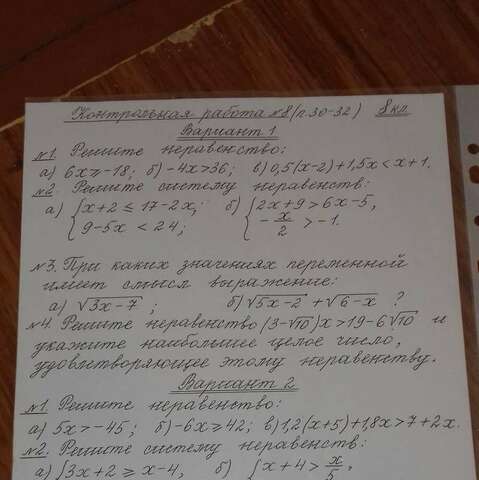 Контрольная работа №8 (п.30-32) 8кл
Вариант 1
№1. Решите неравенство:
а) 6x ≥ -18; б) -4x > 36; в) 0,5(x-2)+1,5x < x+1.
№2. Решите систему неравенств:
а) { x+2 ≤ 17-2x, б) { 2x+9 > 6x-5,
{ 9-5x < 24; { -x/2 > -1.
№3. При каких значениях переменной
имеет смысл выражение:
а) √(3x-7) ; б) √(5x-2) + √(6-x) ?
№4. Решите неравенство (3-√10)x > 19-6√10 и
укажите наибольшее целое число,
удовлетворяющее этому неравенству.
Вариант 2
№1. Решите неравенство:
а) 5x > -45; б) -6x ≥ 42; в) 1,2(x+5)+1,8x > 7+2x.
№2. Решите систему неравенств:
а) { 3x+2 ≥ x-4, б) { x+4 > x/5,